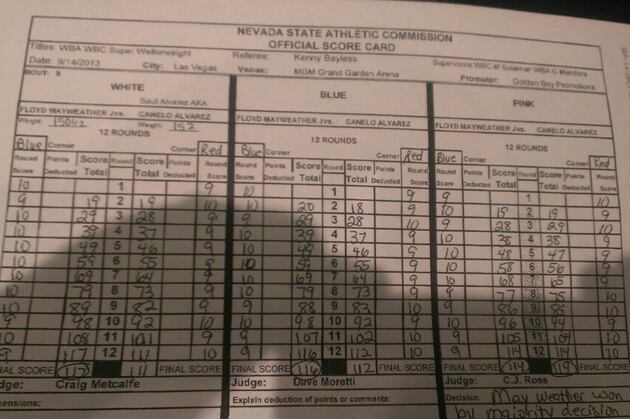 NEVADA STATE ATHLETIC COMMISSION
OFFICIAL SCORE CARD
Titles: WBA WBC Super Welterweight Referee: Kenny Bayless
Date: 9/14/2013 City: Las Vegas Venue: MGM Grand Garden Arena Promoter: Golden Boy Promotions
BOUT: 9
WHITE BLUE PINK
Saul Alvarez AKA
FLOYD MAYWEATHER Jvs. CANELO ALVAREZ FLOYD MAYWEATHER Jvs. CANELO ALVAREZ FLOYD MAYWEATHER Jvs. CANELO ALVAREZ
Weight: 150½ Weight 152
12 ROUNDS 12 ROUNDS 12 ROUNDS
Blue Corner Corner Red Blue Corner Corner Red Blue Corner Corner Red
Round Points Score Round Score Points Round Round Points Score Round Score Points Round Round Points Score Round Score Points Round
Score Deducted Total Total Deducted Score Score Deducted Total Total Deducted Score Score Deducted Total Total Deducted Score
10 1 9 10 1 9 9 1 10
9 19 2 19 10 10 20 2 18 9 10 19 2 19 9
10 29 3 28 9 9 29 3 28 10 9 28 3 29 10
10 39 4 37 9 10 39 4 37 9 10 38 4 38 9
10 49 5 46 9 10 49 5 46 9 10 48 5 47 9
10 59 6 55 9 10 59 6 55 9 10 58 6 56 9
10 69 7 64 9 10 69 7 64 9 10 68 7 65 9
10 79 8 73 9 10 79 8 73 9 9 77 8 75 10
10 89 9 82 9 9 88 9 83 10 9 86 9 85 10
9 98 10 92 10 10 98 10 92 9 10 96 10 94 9
10 108 11 101 9 9 107 11 102 10 9 105 11 104 10
9 117 12 111 10 9 116 12 112 10 9 114 12 114 10
FINAL SCORE 117 111 FINAL SCORE FINAL SCORE 116 112 FINAL SCORE FINAL SCORE 114 114 FINAL SCORE
dge: Craig Metcalfe Judge: Dave Moretti Judge: C.J. Ross
ensions: Explain deduction of points or comments: Decision: Mayweather won
by majority decision